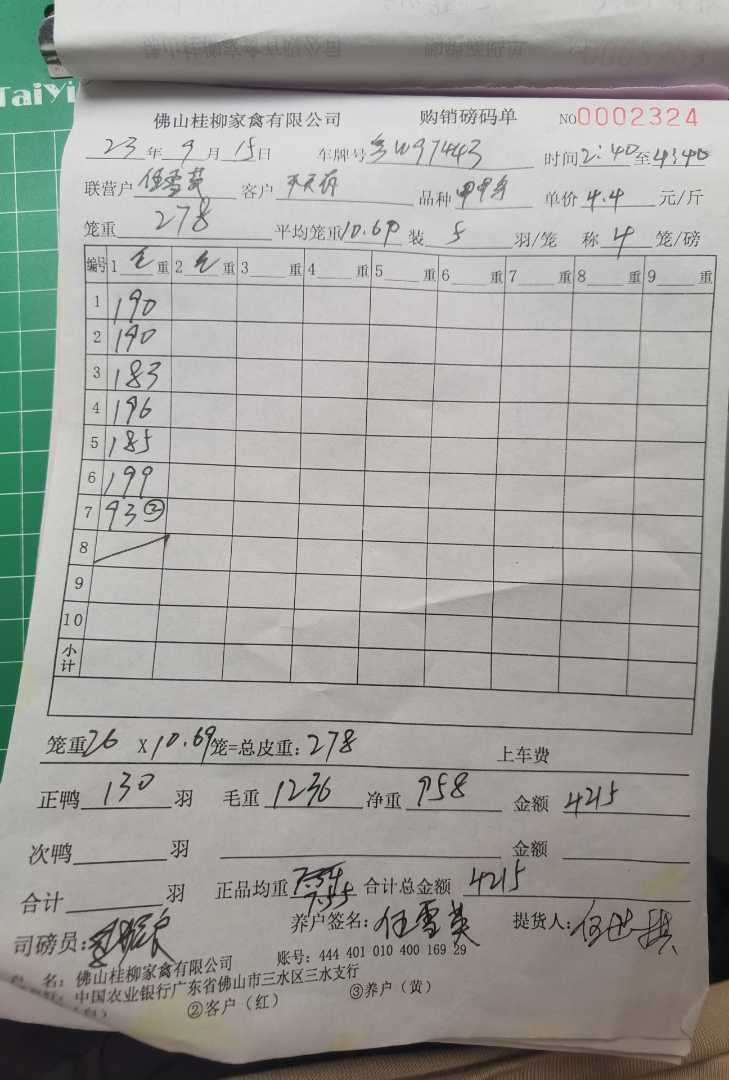 TaiYi
佛山桂柳家禽有限公司 购销磅码单 NO0002324
23年9月15日 车牌号 W97443 时间2:40至4:40
联营户任雪英 客户 品种 单价4.4元/斤
笼重278 平均笼重10.69 装5羽/笼 称4笼/磅
编号 1毛重 2毛重 3重 4重 5重 6重 7重 8重 9重
1 190
2 190
3 183
4 196
5 185
6 199
7 93②
8
9
10
小计
笼重26 X10.69笼=总皮重:278 上车费
正鸭130羽 毛重1236 净重958 金额4215
次鸭羽 金额
合计羽 正品均重7.54 7.55 合计总金额4215
司磅员: 养户签名:任雪英 提货人:
名:佛山桂柳家禽有限公司 账号:444 401 010 400 169 29
中国农业银行广东省佛山市三水区三水支行
②客户(红) ③养户(黄)